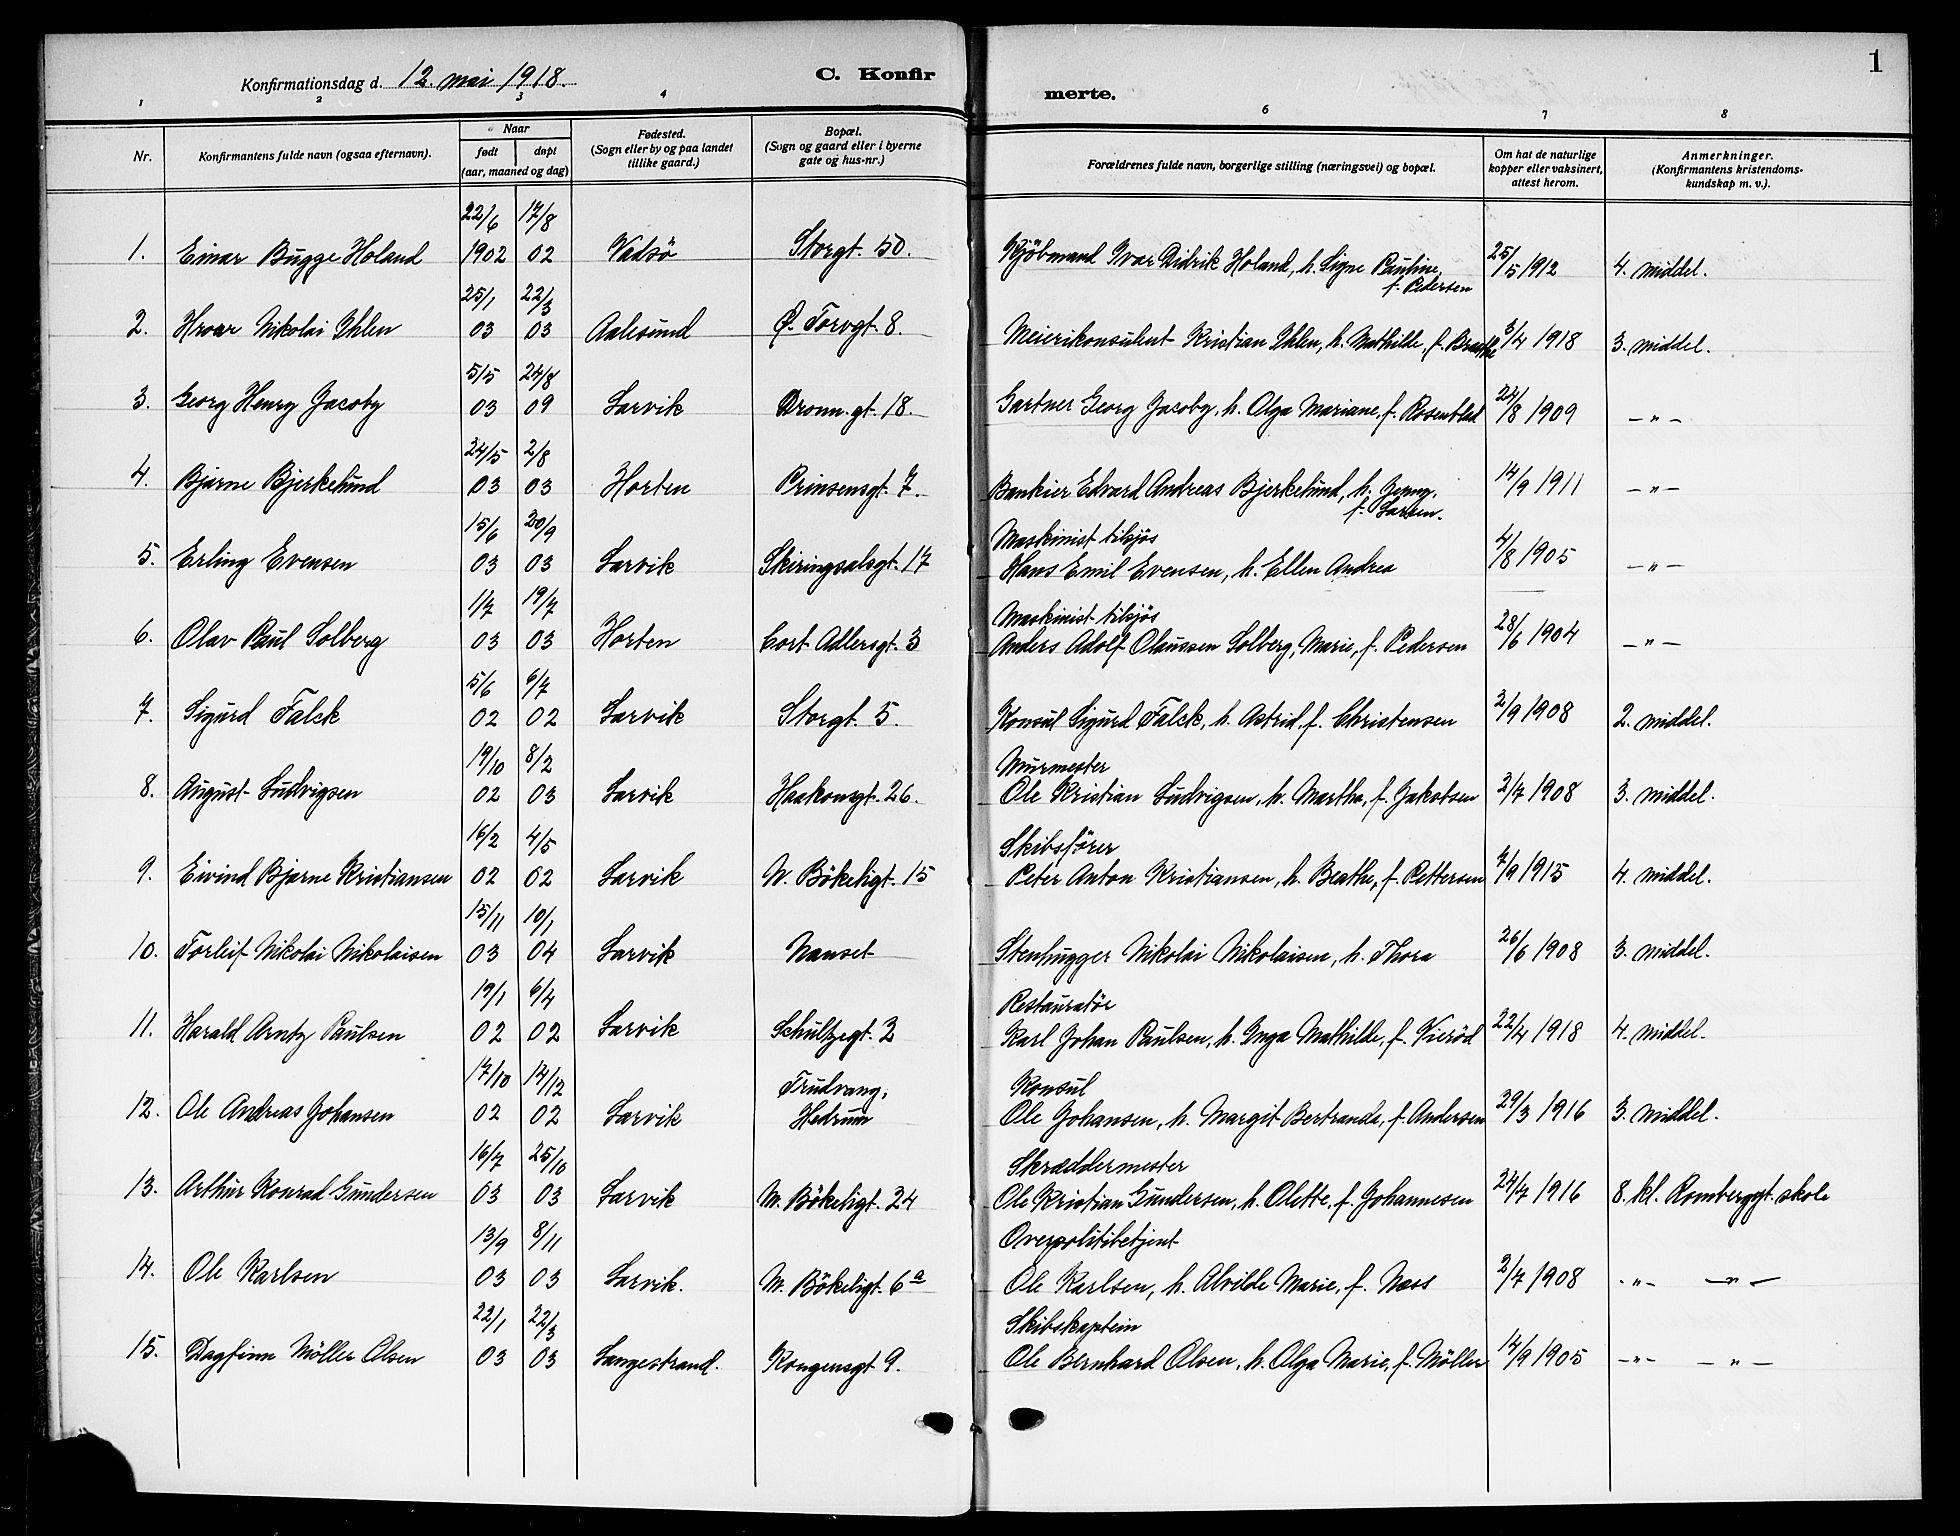 Konfirmationsdag d. 12. mai 1918. C. Konfir merte. 1
1 2 3 4 6 7 8
Nr. Konfirmantens fulde navn (ogsaa efternavn). Naar født døpt (aar, maaned og dag)
Fødested. (Sogn eller by og paa landet tillike gaard.)
Bopæl. (Sogn og gaard eller i byerne gate og hus-nr.)
Forældrenes fulde navn, borgerlige stilling (næringsvei) og bopæl.
Om hat de naturlige kopper eller vaksinert, attest herom.
Anmerkninger. (Konfirmantens kristendoms- kundskap m. v.).
22/6 17/8
1. Einar Bugge Holand 1902 02 Vadsö Storgt. 50. Kjöbmand Ivar Didrik Holand, h. Signe Pauline, f. Pedersen 25/5 1912 4. middel.
25/1 22/3
2. Hroar Nikolai Ihlen 03 03 Aalesund Ø. Torvgt. 8. Meierikonsulent Kristian Ihlen, h. Mathilde, f. 3/4 1918 3. middel.
5/5 24/8
3. Georg Henry Jacoby 03 09 Larvik Dronn.gt. 18. Gartner Georg Jacoby, h. Olga Mariane, f. Rosenblad 24/8 1909 -"-
24/5 2/8
4. Bjarne Bjerkelund 03 03 Horten Prinsensgt. 7. Bankier Edvard Andreas Bjerkelund, h. Jenny, f. Larsen. 14/9 1911 -"-
15/6 20/9 Maskinist tilsjøs
5. Erling Evensen 03 03 Larvik Skiringsalsgt. 17 Hans Emil Evensen, h. Ellen Andrea 4/8 1905 -"-
1/7 19/7 Maskinist tilsjøs
6. Olav Paul Solberg 03 03 Horten Cort Adlersgt. 3 Anders Adolf Olaussen Solberg, Marie, f. Pedersen 28/6 1904 -"-
5/6 6/7
7. Sigurd Falck 02 02 Larvik Storgt. 5. Konsul Sigurd Falck, h. Astrid, f. Christensen 2/9 1908 2. middel.
19/10 8/2 Murmester
8. August Ludvigsen 02 03 Larvik Haakonsgt. 26. Ole Kristian Ludvigsen, h. Martha, f. Jakobsen 2/7 1908 3. middel.
16/2 4/5 Skibsförer
9. Eivind Bjarne Kristiansen 02 02 Larvik N. Bökeligt. 15 Peter Anton Kristiansen, h. Beathe, f. Pettersen 7/9 1915 4. middel.
15/11 10/1
10. Torleif Nikolai Nikolaisen 03 04 Larvik Nanset Stenhugger Nikolai Nikolaisen, h. Thora 26/6 1908 3. middel.
19/1 6/4 Restauratör
11. Harald Arntz Paulsen 02 02 Larvik Schultzegt. 2 Karl Johan Paulsen, h. Inga Mathilde, f. Vieröd 22/4 1918 4. middel.
17/10 14/12 Trudvang, Konsul
12. Ole Andreas Johansen 02 02 Larvik Hedrum Ole Johansen, h. Margit Bertrande, f. Andersen 29/3 1916 3. middel.
16/7 25/10 Skræddermester
13. Arthur Konrad Gundersen 03 03 Larvik M. Bökeligt. 24 Ole Kristian Gundersen, h. Olette, f. Johannesen 24/7 1916 8. kl. Rombergt. skole
13/9 8/11 Overpolitibetjent
14. Ole Karlsen 03 03 Larvik. M. Bökeligt. 6a Ole Karlsen, h. Alvilde Marie, f. Næss 2/7 1908 -"- -"-
22/1 22/3 Skibskaptein
15. Dagfinn Möller Olsen 03 03 Langestrand. Kongensgt 9. Ole Bernhard Olsen, h. Olga Marie, f. Möller 14/9 1905 -"- -"-